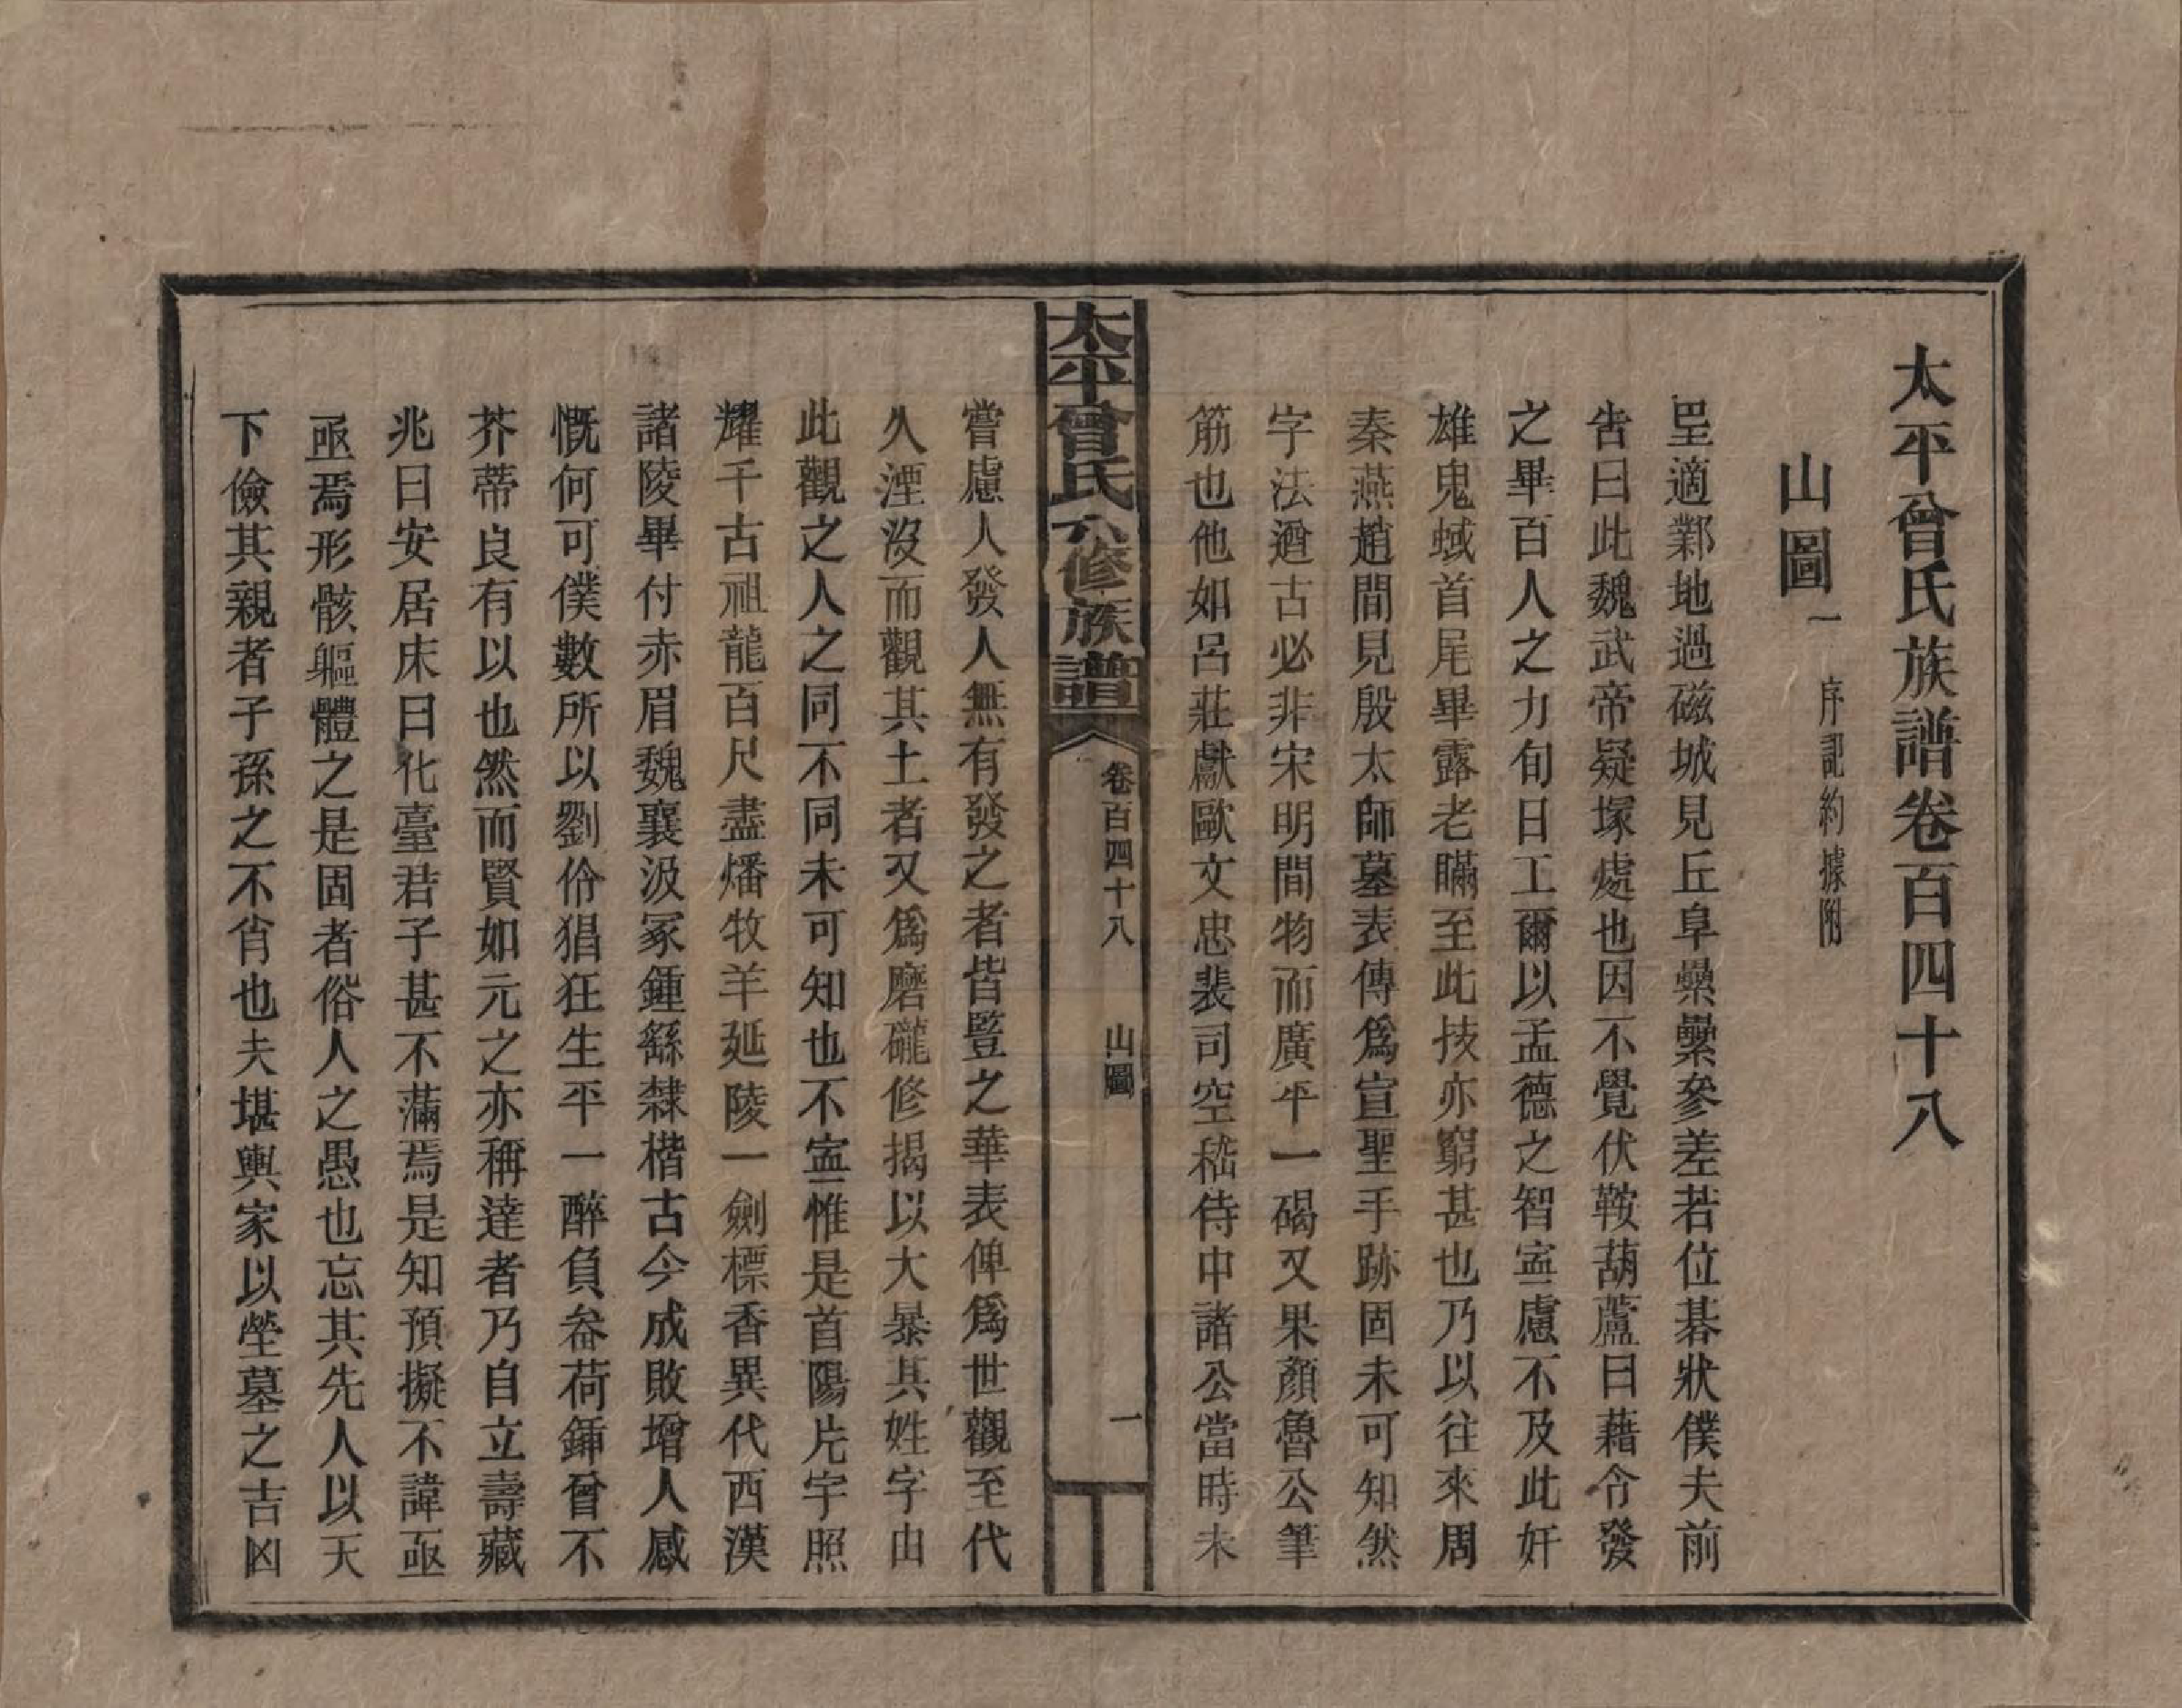 太平曾氏族譜卷百四十八
山圖一 序記約據附
垾適鄴地過磁城見丘阜纍纍參差若位碁狀僕夫前
告曰此魏武帝疑塚處也因不覺伏鞍葫蘆曰藉令發
之畢百人之力旬日工爾以孟德之智寍慮不及此奸
雄鬼蜮首尾畢露老瞞至此技亦窮甚也乃以往來周
秦燕趙間見殷太師墓表傳爲宣聖手跡固未可知然
字法遒古必非宋明間物而廣平一碣又果顏魯公筆
筋也他如呂莊獻歐文忠裴司空嵇侍中諸公當時未
太平曾氏六修族譜 卷百四十八 山圖 一
嘗慮人發人無有發之者皆豎之華表俾爲世觀至代
久湮沒而觀其土者又爲磨礲修揭以大暴其姓字由
此觀之人之同不同未可知也不寍惟是首陽片宇照
耀千古祖龍百尺盡燔牧羊延陵一劍標香異代西漢
諸陵畢付赤眉魏襄汲冢鍾繇隸楷古今成敗增人感
慨何可僕數所以劉伶猖狂生平一醉負畚荷鍤曾不
芥蒂良有以也然而賢如元之亦稱達者乃自立壽藏
兆曰安居床曰化臺君子甚不滿焉是知預擬不諱亟
亟焉形骸軀體之是固者俗人之愚也忘其先人以天
下儉其親者子孫之不肖也夫堪輿家以塋墓之吉凶